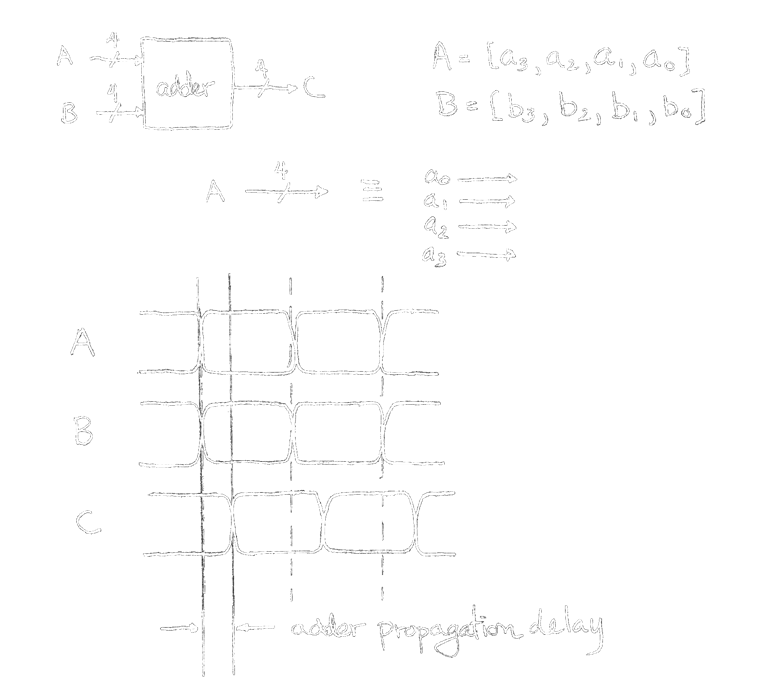 4
A
adder
4
C
4
B
A = [a₃, a₂, a₁, a₀]
B = [b₃, b₂, b₁, b₀]
4
A ≡
a₀
a₁
a₂
a₃
A
B
C
adder propagation delay